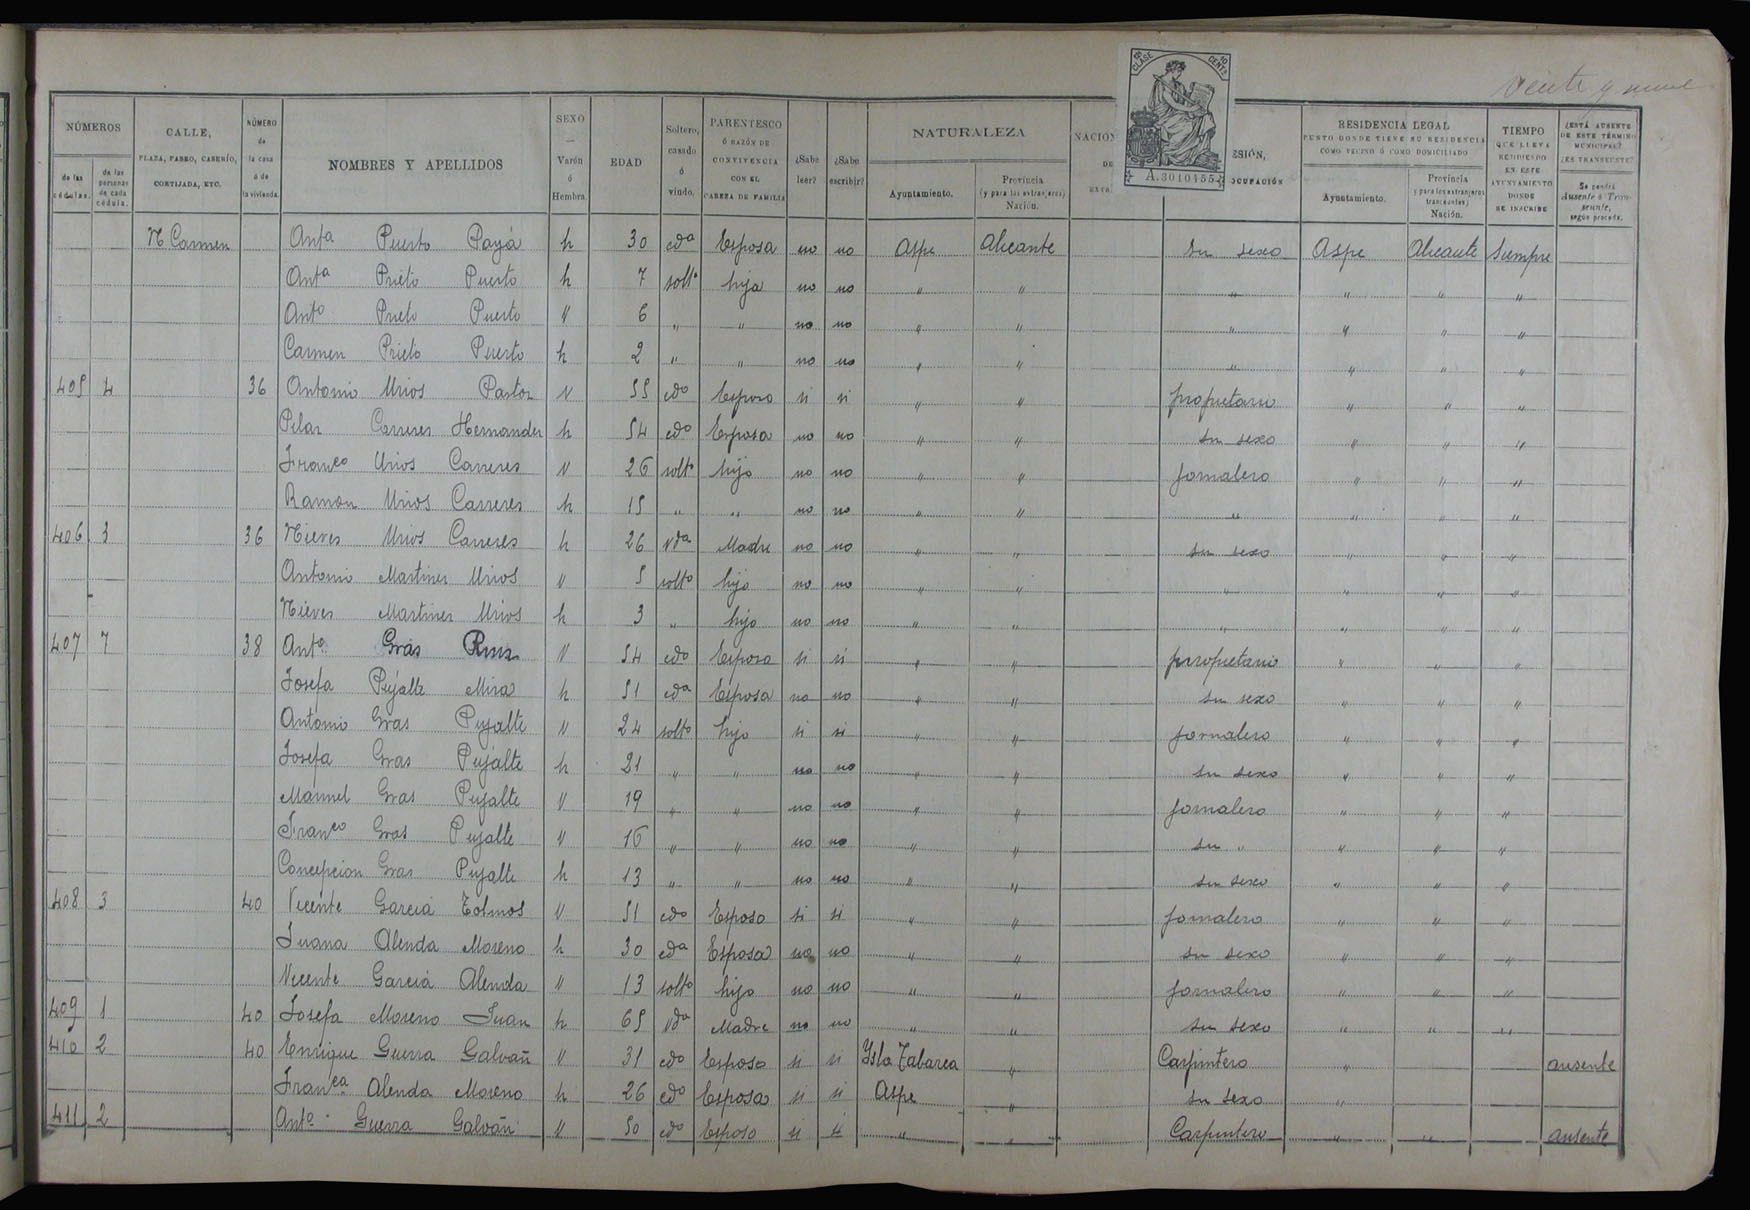 veinte y nueve
5ª CLASE 10 CENTS.
A.3010455
NÚMEROS
de las cédulas.
de las personas de cada cédula.
CALLE,
PLAZA, PASEO, CASERÍO,
CORTIJADA, ETC.
NÚMERO de la casa ó de la vivienda.
NOMBRES Y APELLIDOS
SEXO — Varón ó Hembra.
EDAD
Soltero, casado ó viudo.
PARENTESCO Ó RAZÓN DE CONVIVENCIA CON EL CABEZA DE FAMILIA
¿Sabe leer?
¿Sabe escribir?
NATURALEZA
Ayuntamiento.
Provincia (y para los extranjeros) Nación.
NACION
DE
EXTR
ESIÓN,
OCUPACIÓN
RESIDENCIA LEGAL
PUNTO DONDE TIENE SU RESIDENCIA COMO VECINO Ó COMO DOMICILIADO
Ayuntamiento.
Provincia y para los extranjeros transeuntes) Nación.
TIEMPO QUE LLEVA RESIDIENDO EN ESTE AYUNTAMIENTO DONDE SE INSCRIBE
¿ESTÁ AUSENTE DE ESTE TÉRMINO MUNICIPAL? ¿ES TRANSEUNTE?
Se pondrá Ausente ó Transeunte, según proceda.
N Carmen Antª Puerto Payá h 30 cdª Esposa no no Aspe Alicante Su sexo Aspe Alicante Siempre
Antª Prieto Puerto h 7 soltª hija no no " " " " " "
Antº Prieto Puerto V 6 " " no no " " " " " "
Carmen Prieto Puerto h 2 " " no no " " " " " "
405 4 36 Antonio Urios Pastor V 55 cdº Esposo si si " " propietario " " "
Pilar Carreres Hernandez h 54 cdº Esposa no no " " su sexo " " "
Francº Urios Carreres V 26 soltº hijo no no " " Jornalero " " "
Ramon Urios Carreres h 15 " " no no " " " " " "
406 3 36 Nieves Urios Carreres h 26 Vdª Madre no no " " su sexo " " "
Antonio Martinez Urios V 5 soltº hijo no no " " " " " "
Nieves Martinez Urios h 3 " hijo no no " " " " " "
407 7 38 Antº Gras Ruiz V 54 cdº Esposo si si " " propietario " " "
Josefa Pujalte Mira h 51 cdª Esposa no no " " su sexo " " "
Antonio Gras Pujalte V 24 soltº hijo si si " " Jornalero " " "
Josefa Gras Pujalte h 21 " " no no " " su sexo " " "
Manuel Gras Pujalte V 19 " " no no " " Jornalero " " "
Francº Gras Pujalte V 16 " " no no " " su " " " "
Concepcion Gras Pujalte h 13 " " no no " " su sexo " " "
408 3 40 Vicente Garcia Tolmos V 51 cdº Esposo si si " " Jornalero " " "
Juana Alenda Moreno h 30 cdª Esposa no no " " su sexo " " "
Vicente Garcia Alenda V 13 soltº hijo no no " " Jornalero " " "
409 1 40 Josefa Moreno Juan h 65 Vdª Madre no no " " su sexo " " "
410 2 40 Enrique Guerra Galvañ V 31 cdº Esposo si si Ysla Tabarca " Carpintero " ausente
Franca Alenda Moreno h 26 cdº Esposa si si Aspe " su sexo "
411 2 Antº Guerra Galvañ V 50 cdº Esposo si si " " Carpintero " " ausente